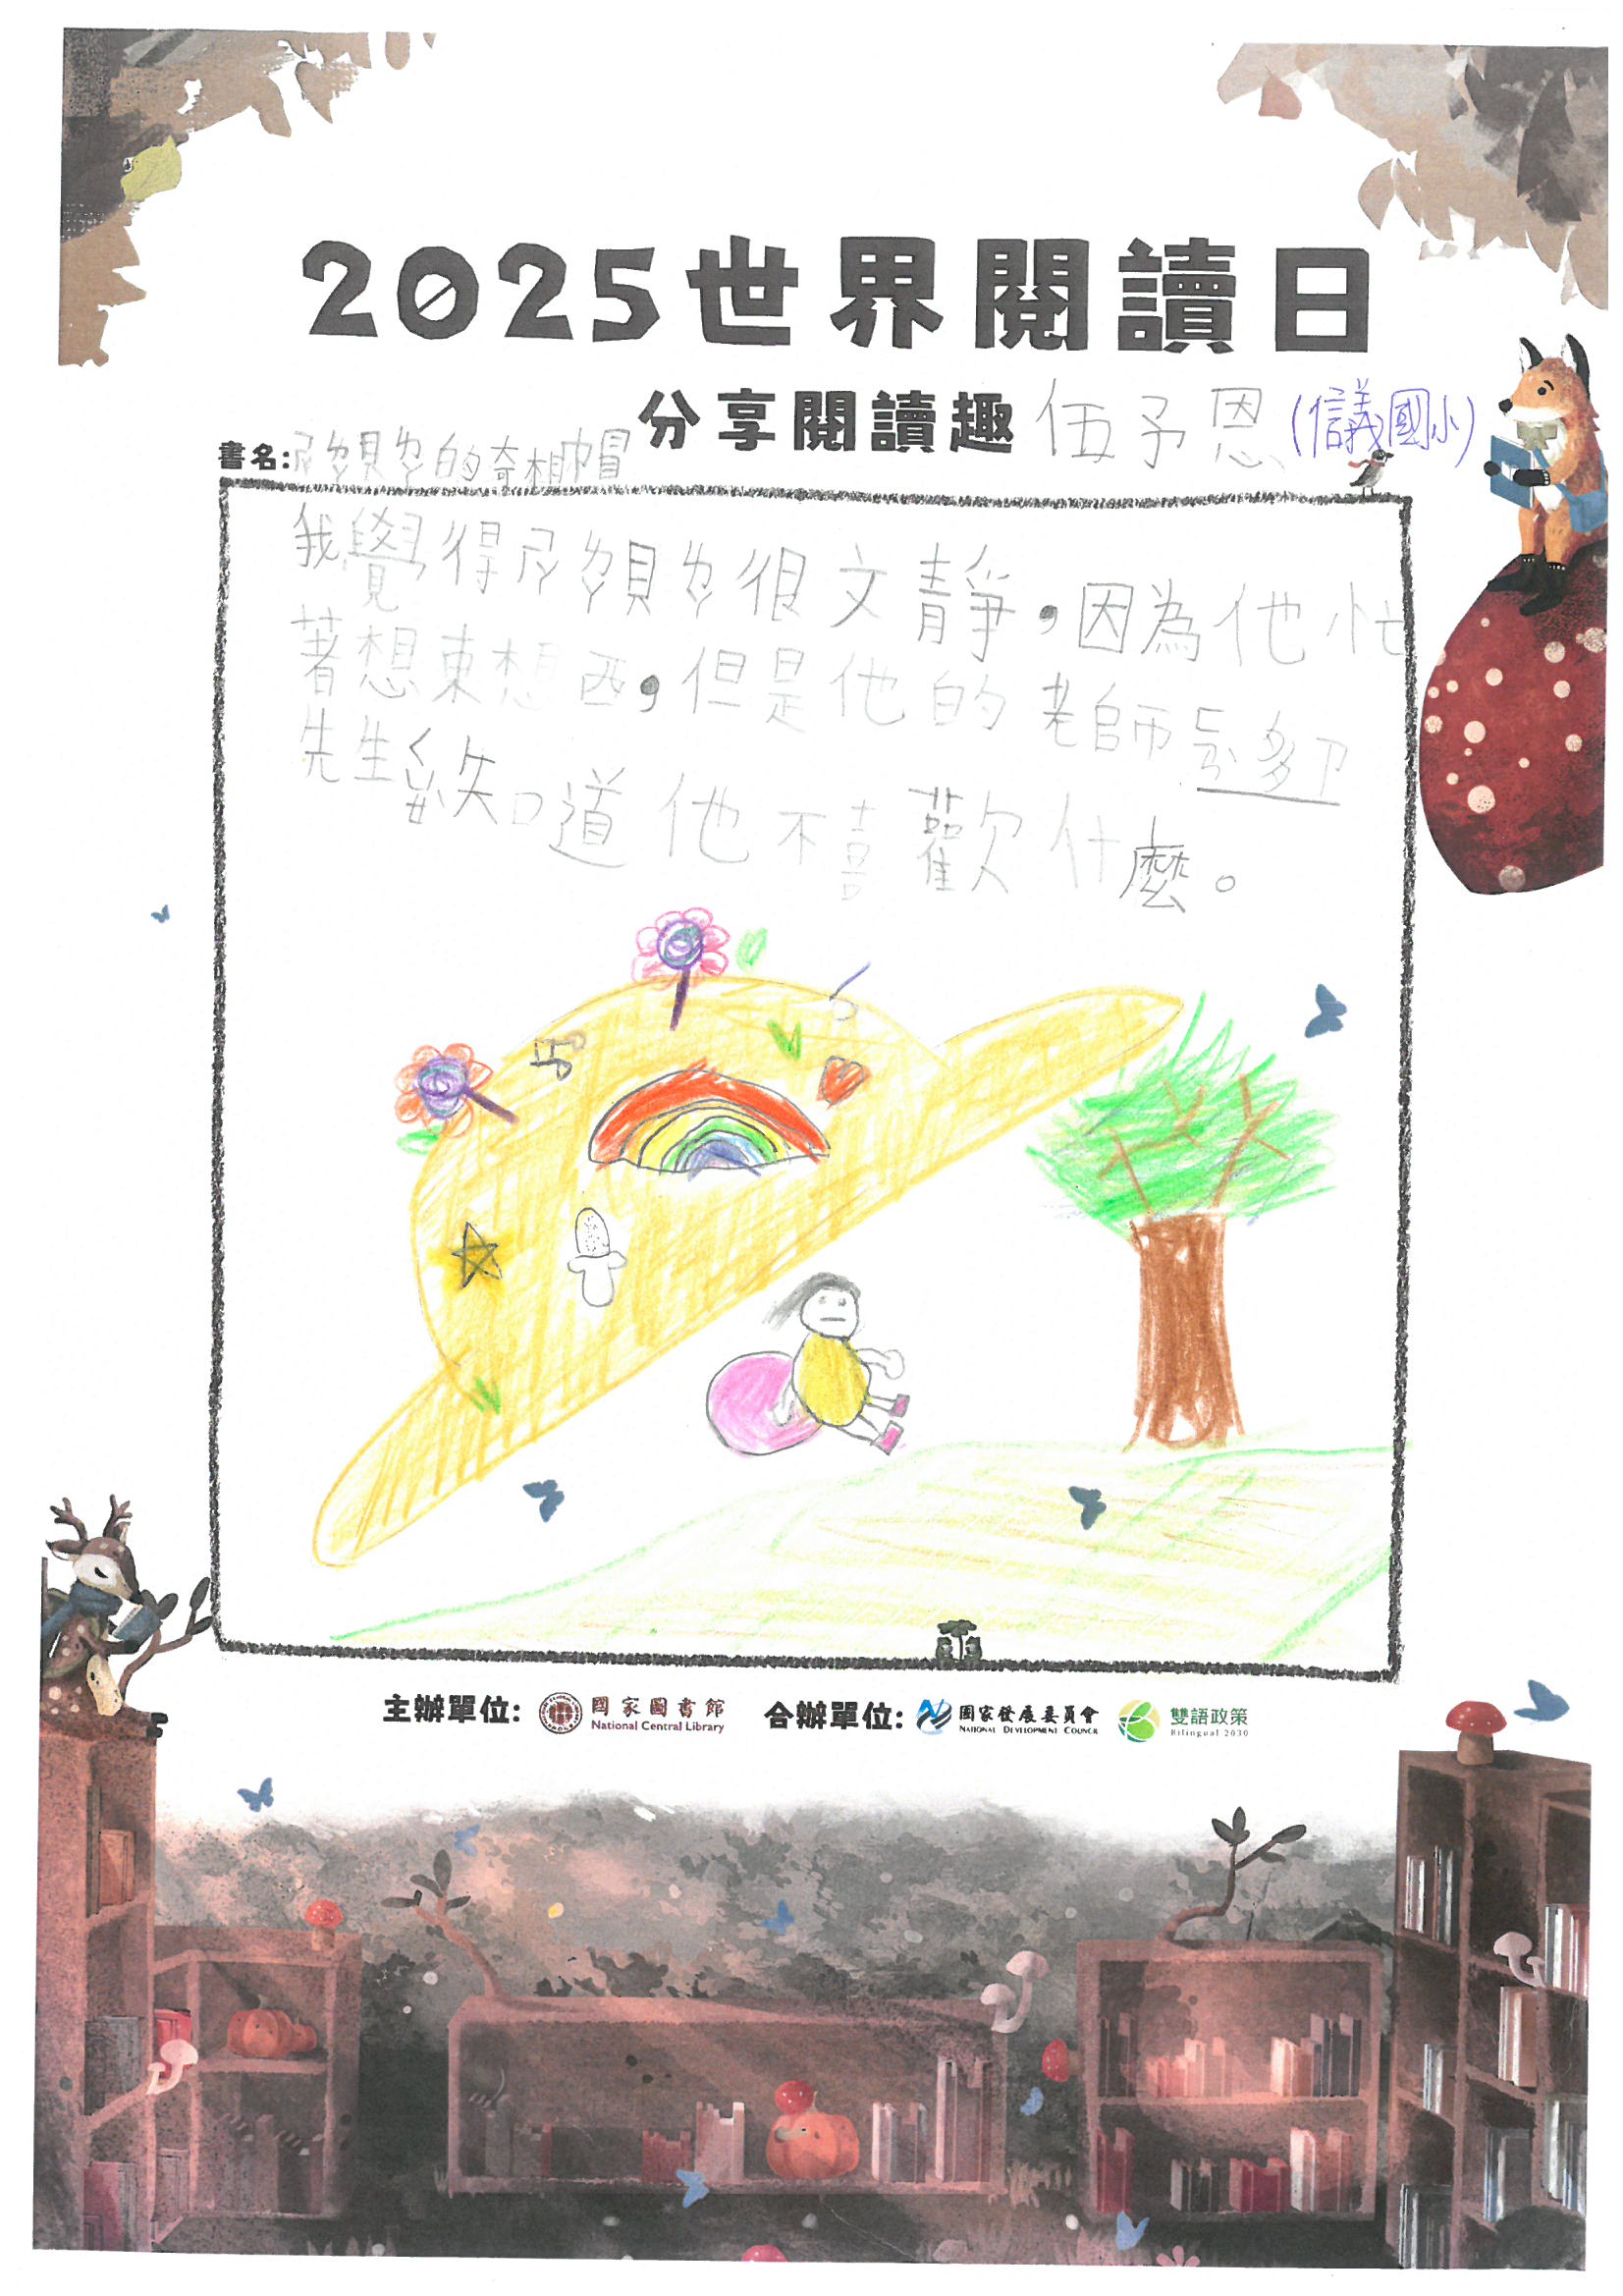 2025世界閱讀日
分享閱讀趣 伍予恩(信義國小)
書名: 的奇想帽
我覺得 很文靜,因為他忙
著想東想西,但是他的老師
先生 知道他不喜歡什麼。
主辦單位: 國家圖書館 National Central Library 合辦單位: 國家發展委員會 NATIONAL DEVELOPMENT COUNCIL 雙語政策 Bilingual 2030